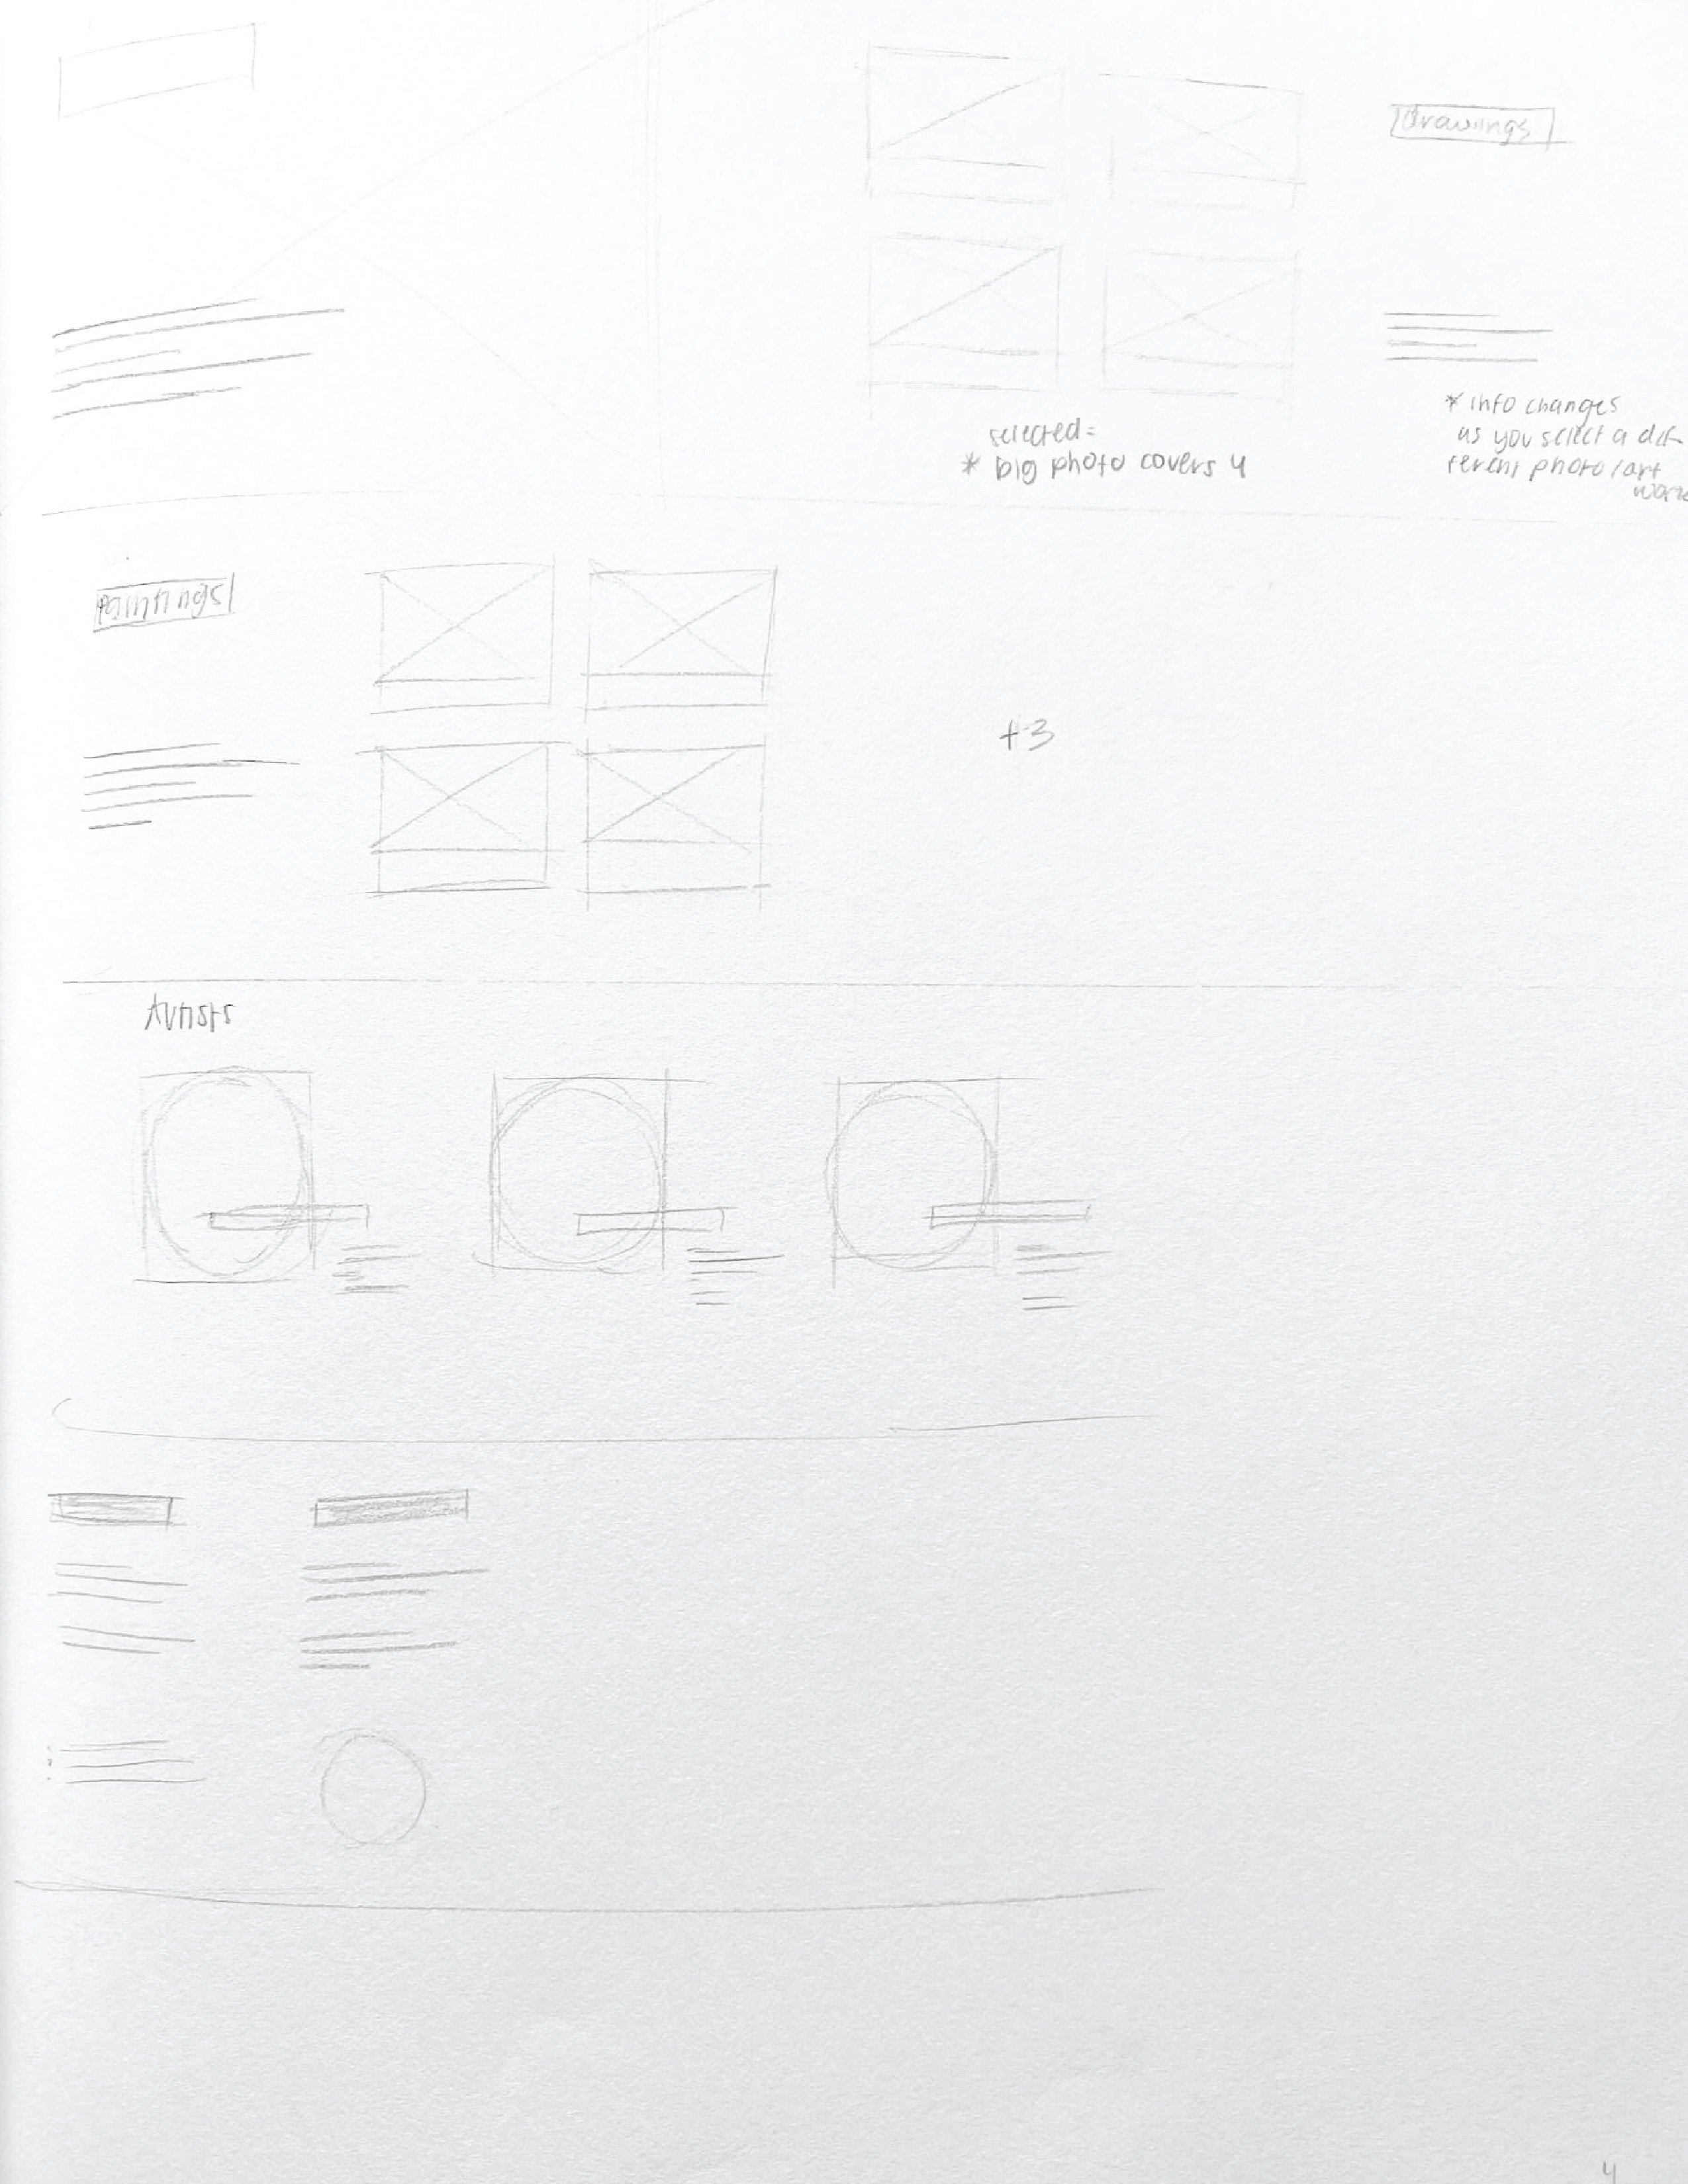 drawings
selected=
* big photo covers 4
* info changes
as you select a dif-
ferent photo/art
work
Paintings
+3
Artists
4